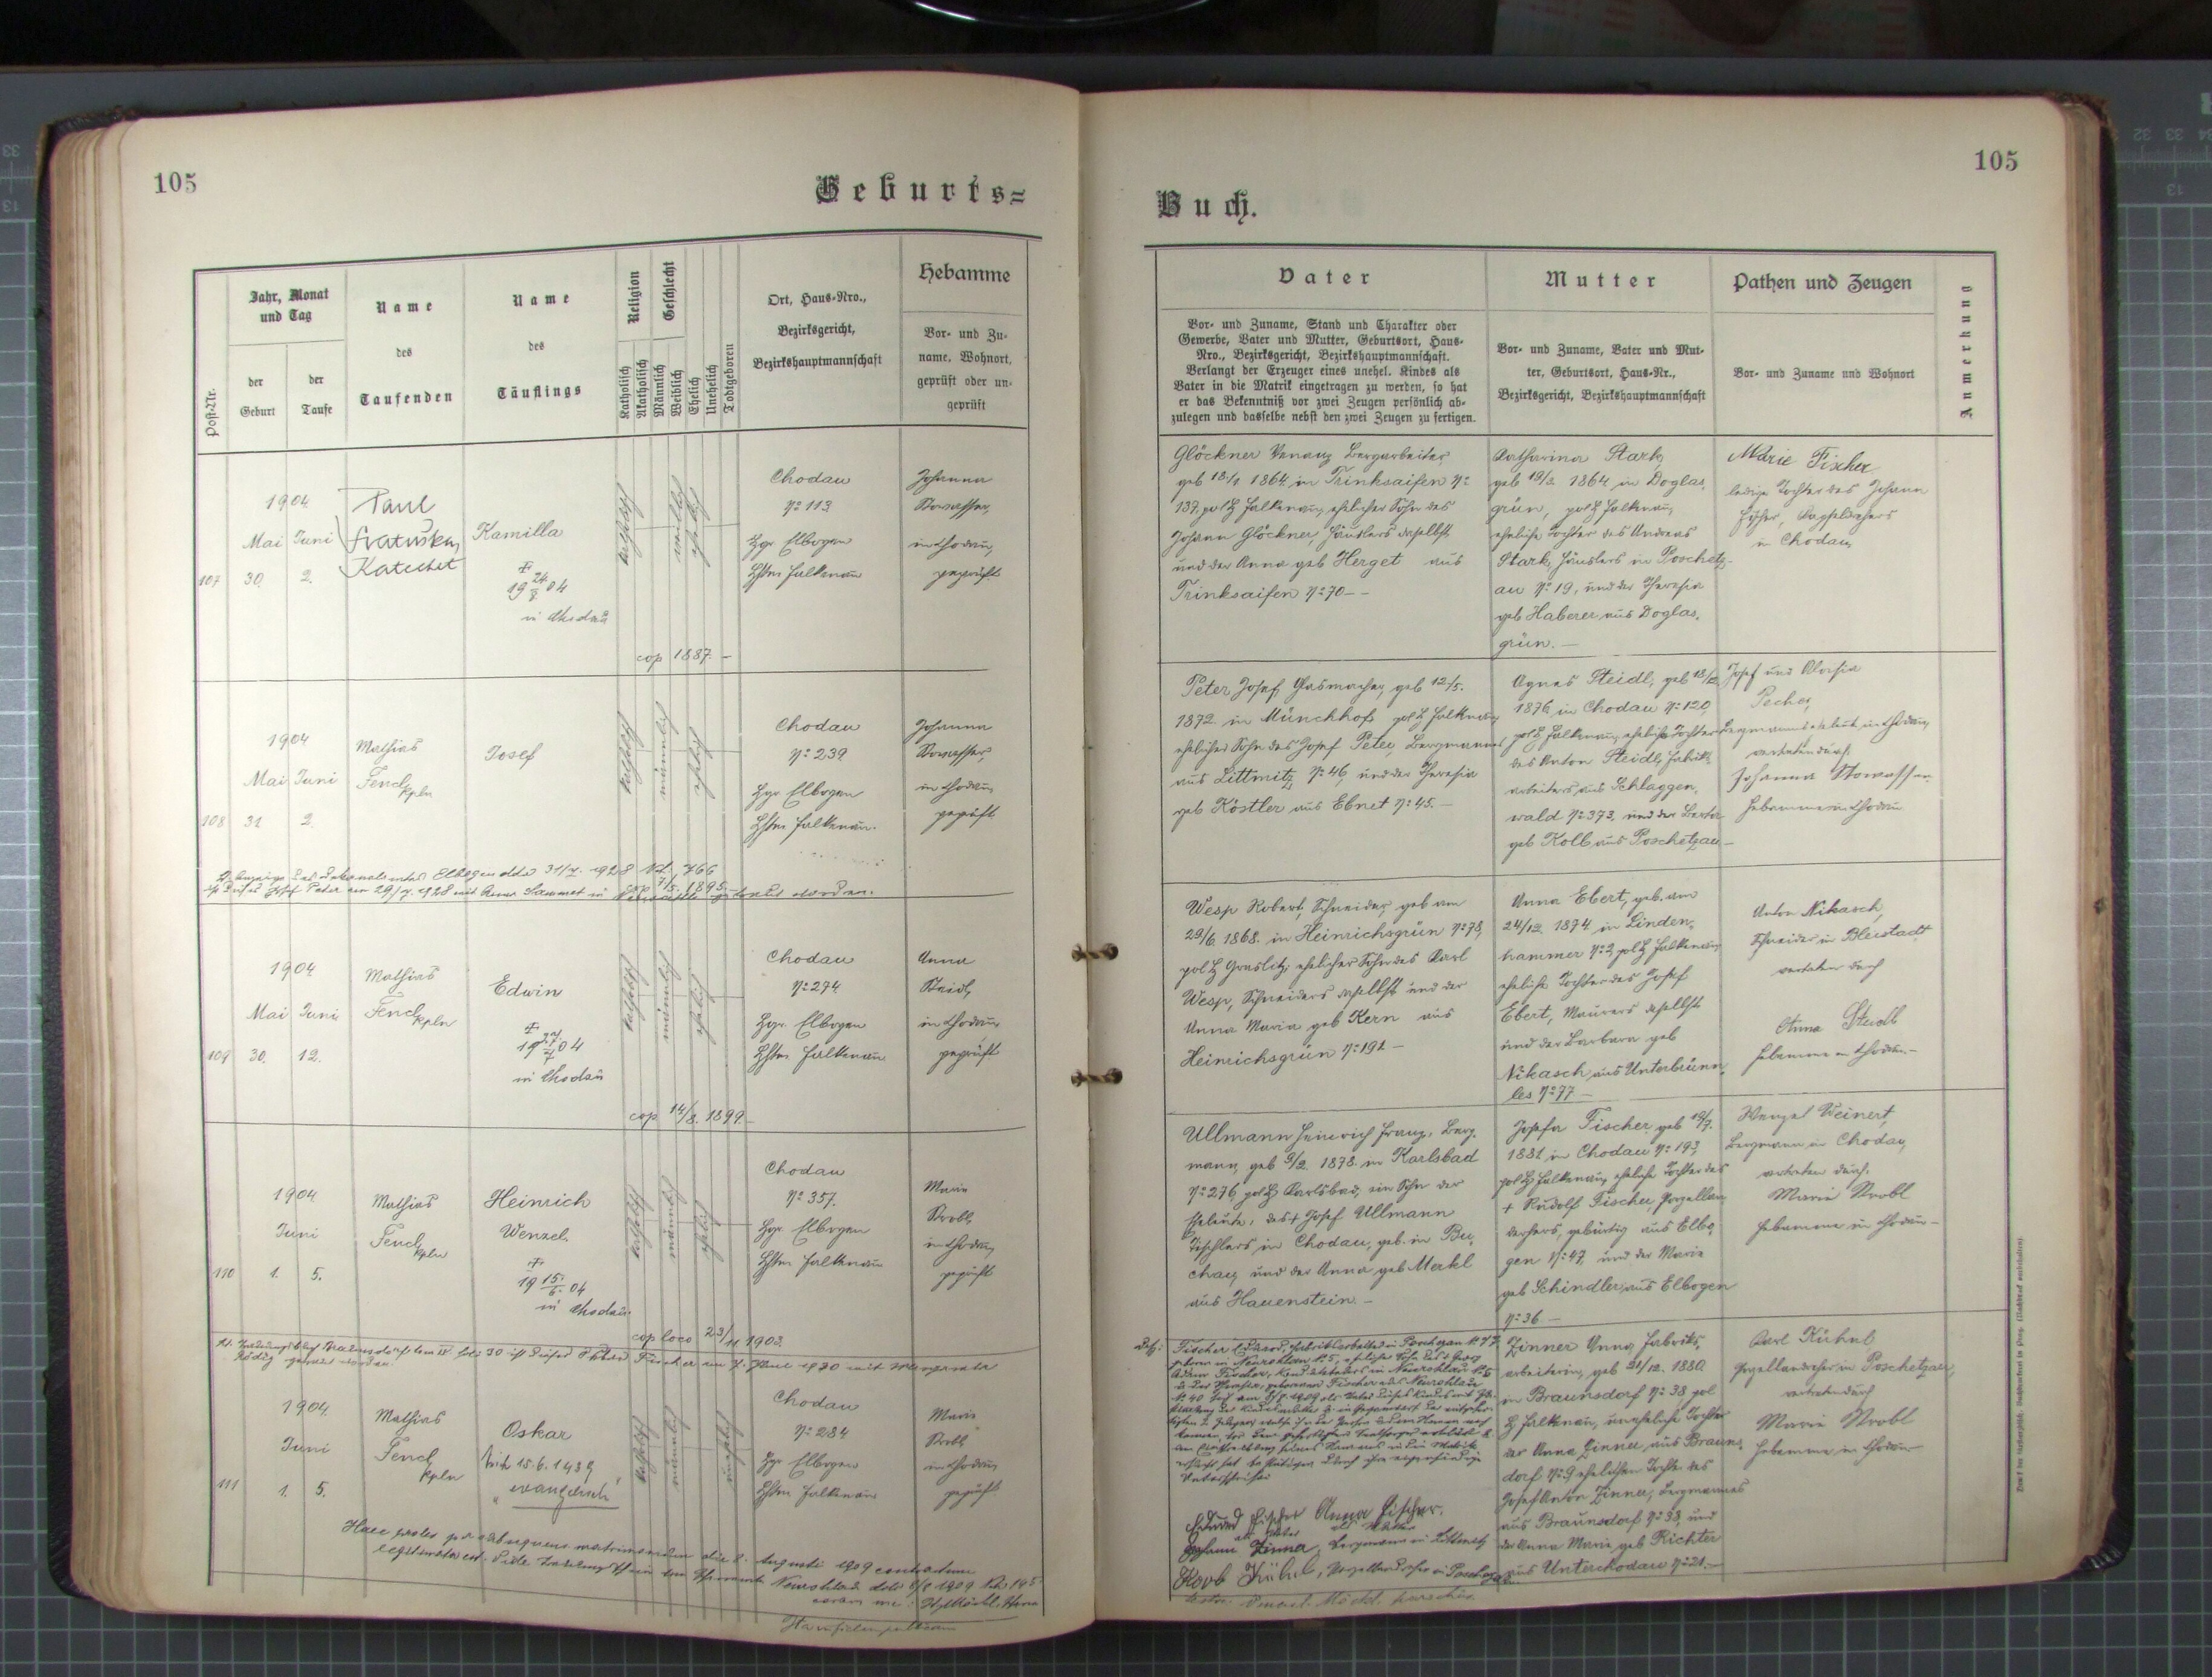 105
Geburts=
Jahr, Monat
und Tag
Name
des
Taufenden
Name
des
Täuflings
Religion
Geschlecht
Ort, Haus-Nro.,
Bezirksgericht,
Bezirkshauptmannschaft
Hebamme
Vor- und Zu-
name, Wohnort,
geprüft oder un-
geprüft
Post-Nr.
der
Geburt
der
Taufe
Katholisch
Akatholisch
Männlich
Weiblich
Ehelich
Unehelich
Todtgeboren
1904
Mai Juni
107 30. 2.
Paul
Katechet
Kamilla
19 24/8 04
in Chodau
katholisch
weiblich
ehelich
Chodau
No 113
Bzgr Elbogen
Bhptm Falkenau
Johanna
Stowasser,
in Chodau,
geprüft
cop 1887. –
1904
Mai Juni
108 31 2.
Mathias
Fencl
kpln
Josef
katholisch
männlich
ehelich
Chodau
No 239
Bzgr Elbogen
Bhptm Falkenau.
Johanna
Stowasser,
in Chodau,
geprüft
1904
Mai Juni
109 30. 12.
Mathias
Fencl
kpln
Edwin
19 27/7 04
in Chodau
katholisch
männlich
ehelich
Chodau
No 274
Bzgr. Elbogen
Bhptm Falkenau
Anna
Steidl,
in Chodau,
geprüft
cop 14/8. 1899. –
1904
Juni
110 1. 5.
Mathias
Fencl
kpln
Heinrich
Wenzel
19 15/6 04
in Chodau
katholisch
männlich
ehelich
Chodau
No 357.
Bzgr Elbogen
Bhptm Falkenau
Marie
Strobl,
in Chodau,
geprüft
cop loco 23/11 1903.
1904
Juni
111 1. 5.
Mathias
Fencl
kpln
Oskar
15.6.1939
"evangelisch"
katholisch
männlich
unehelich
Chodau
No 284
Bzgr Elbogen
Bhptm Falkenau
Marie
Strobl
in Chodau
geprüft
Haec proles per subsequens matrimonium die 8. Augusti 1909 contractum
legitimata est.
105
Buch.
Vater
Vor- und Zuname, Stand und Charakter oder
Gewerbe, Vater und Mutter, Geburtsort, Haus-
Nro., Bezirksgericht, Bezirkshauptmannschaft.
Verlangt der Erzeuger eines unehel. Kindes als
Vater in die Matrik eingetragen zu werden, so hat
er das Bekenntniß vor zwei Zeugen persönlich ab-
zulegen und dasselbe nebst den zwei Zeugen zu fertigen.
Mutter
Vor- und Zuname, Vater und Mut-
ter, Geburtsort, Haus-Nr.,
Bezirksgericht, Bezirkshauptmannschaft
Pathen und Zeugen
Vor- und Zuname und Wohnort
Anmerkung
Glöckner Venanz Bergarbeiter,
geb 18/1 1864 in Trinksaifen No
137. pol B Falkenau, ehelicher Sohn des
Johann Glöckner, Häuslers daselbst
und der Anna geb Herget aus
Trinksaifen No 70 – –
Katharina Stark,
geb 19/2 1864 in Doglas-
grün, pol B Falkenau,
eheliche Tochter des Andreas
Stark, Häuslers in Poschetz-
au No 19, und der Theresia
geb Haberer aus Doglas-
grün. –
Marie Fischer
ledige Tochter des Johann
Fischer,
in Chodau
Peter Josef, Glasmacher, geb 12/5.
1872. in Münchhof, pol B Falkenau,
ehelicher Sohn des Josef Peter, Bergmannes
aus Littmitz No 46, und der Theresia
geb Köstler aus Ebnet No 45. –
Agnes Steidl, geb 18/12.
1876, in Chodau No 120,
pol B Falkenau, eheliche Tochter
des Anton Steidl, Fabriks-
arbeiters aus Schlaggen-
wald No 373, und der Berta
geb Kolb aus Poschetzau –
Josef und Aloisia
Pecher,
Bergmannseheleute in Chodau,
vertreten durch:
Johanna Stowasser
Hebamme in Chodau
Wesp Robert, Schneider, geb am
29/6. 1868. in Heinrichsgrün No 78,
pol B Graslitz, ehelicher Sohn des Karl
Wesp, Schneiders daselbst und der
Anna Maria geb Kern aus
Heinrichsgrün No 191 –
Anna Ebert, geb. am
24/12. 1874 in Linden-
hammer No 2, pol B Falkenau,
eheliche Tochter des Josef
Ebert, Maurers daselbst
und der Barbara geb
Nikasch, aus Unterbrünn-
les No 77 –
Anton Nikasch,
Schneider in Bleistadt
vertreten durch
Anna Steidl
Hebamme in Chodau –
Ullmann Heinrich Franz, Berg-
mann, geb 9/2. 1878. in Karlsbad
No 276, pol B Karlsbad, ein Sohn der
Eheleute, des + Josef Ullmann
Tischlers in Chodau, geb. in Bu-
chau, und der Anna geb Merkl
aus Hauenstein. –
Josefa Fischer, geb 19/7.
1881 in Chodau No 193,
pol B Falkenau, eheliche Tochter des
+ Rudolf Fischer, Porzellan-
drehers, gebürtig aus Elbo-
gen No 47, und der Maria
geb Schindler, aus Elbogen
No 36 –
Wenzel Weinert,
Bergmann in Chodau,
vertreten durch:
Marie Strobl
Hebamme in Chodau –
Fischer Eduard, Fabriksarbeiter in Poschezau No 77
Adam Fischer,
Eduard Fischer Anna Fischer.
als Vater als Mutter
Johann Zinner, Bergmann in Littmitz
Zinner Anna Fabriks-
arbeiterin, geb 21/12. 1880
in Braunsdorf No 38 pol
B Falkenau, uneheliche Tochter
der Anna Zinner aus Brauns-
dorf No 9 ehelichen Tochter des
Josef Anton Zinner, Bergmannes
aus Braunsdorf No 38, und
der Anna Maria geb Richter
aus Unterchodau No 21. –
Karl Kühnl
Porzellandreher in Poschetzau,
vertreten durch
Marie Strobl
Hebamme in Chodau